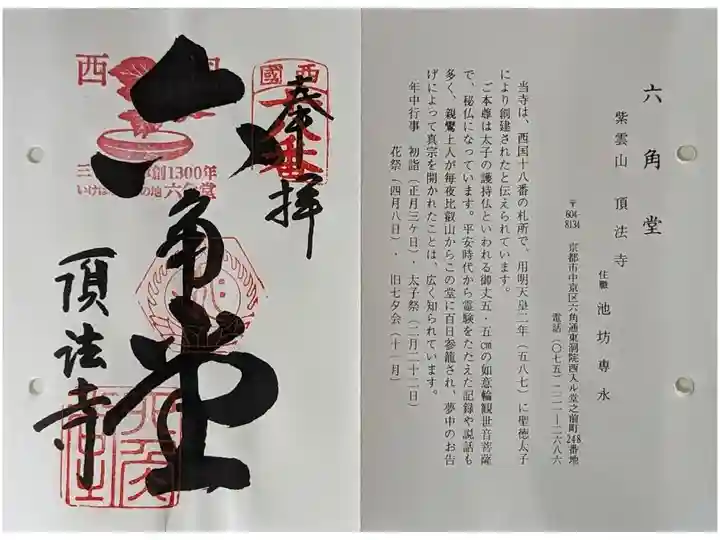 六角堂
紫雲山 頂法寺
住職 池坊専永
〒604-8134 京都市中京区六角通東洞院西入ル堂之前町248番地
電話(〇七五)二二一―二六八六
当寺は、西国十八番の札所で、用明天皇二年(五八七)に聖徳太子
により創建されたと伝えられています。
ご本尊は太子の護持仏といわれる御丈五・五㎝の如意輪観世音菩薩
で、秘仏になっています。平安時代から霊験をたたえた記録や説話も
多く、親鸞上人が毎夜比叡山からこの堂に百日参籠され、夢中のお告
げによって真宗を開かれたことは、広く知られています。
年中行事 初詣(正月三ケ日)・太子祭(二月二十二日)
花祭(四月八日)・旧七夕会(十一月)
西國
奉拝
六角堂
頂法寺
西
創1300年
の地 六角堂